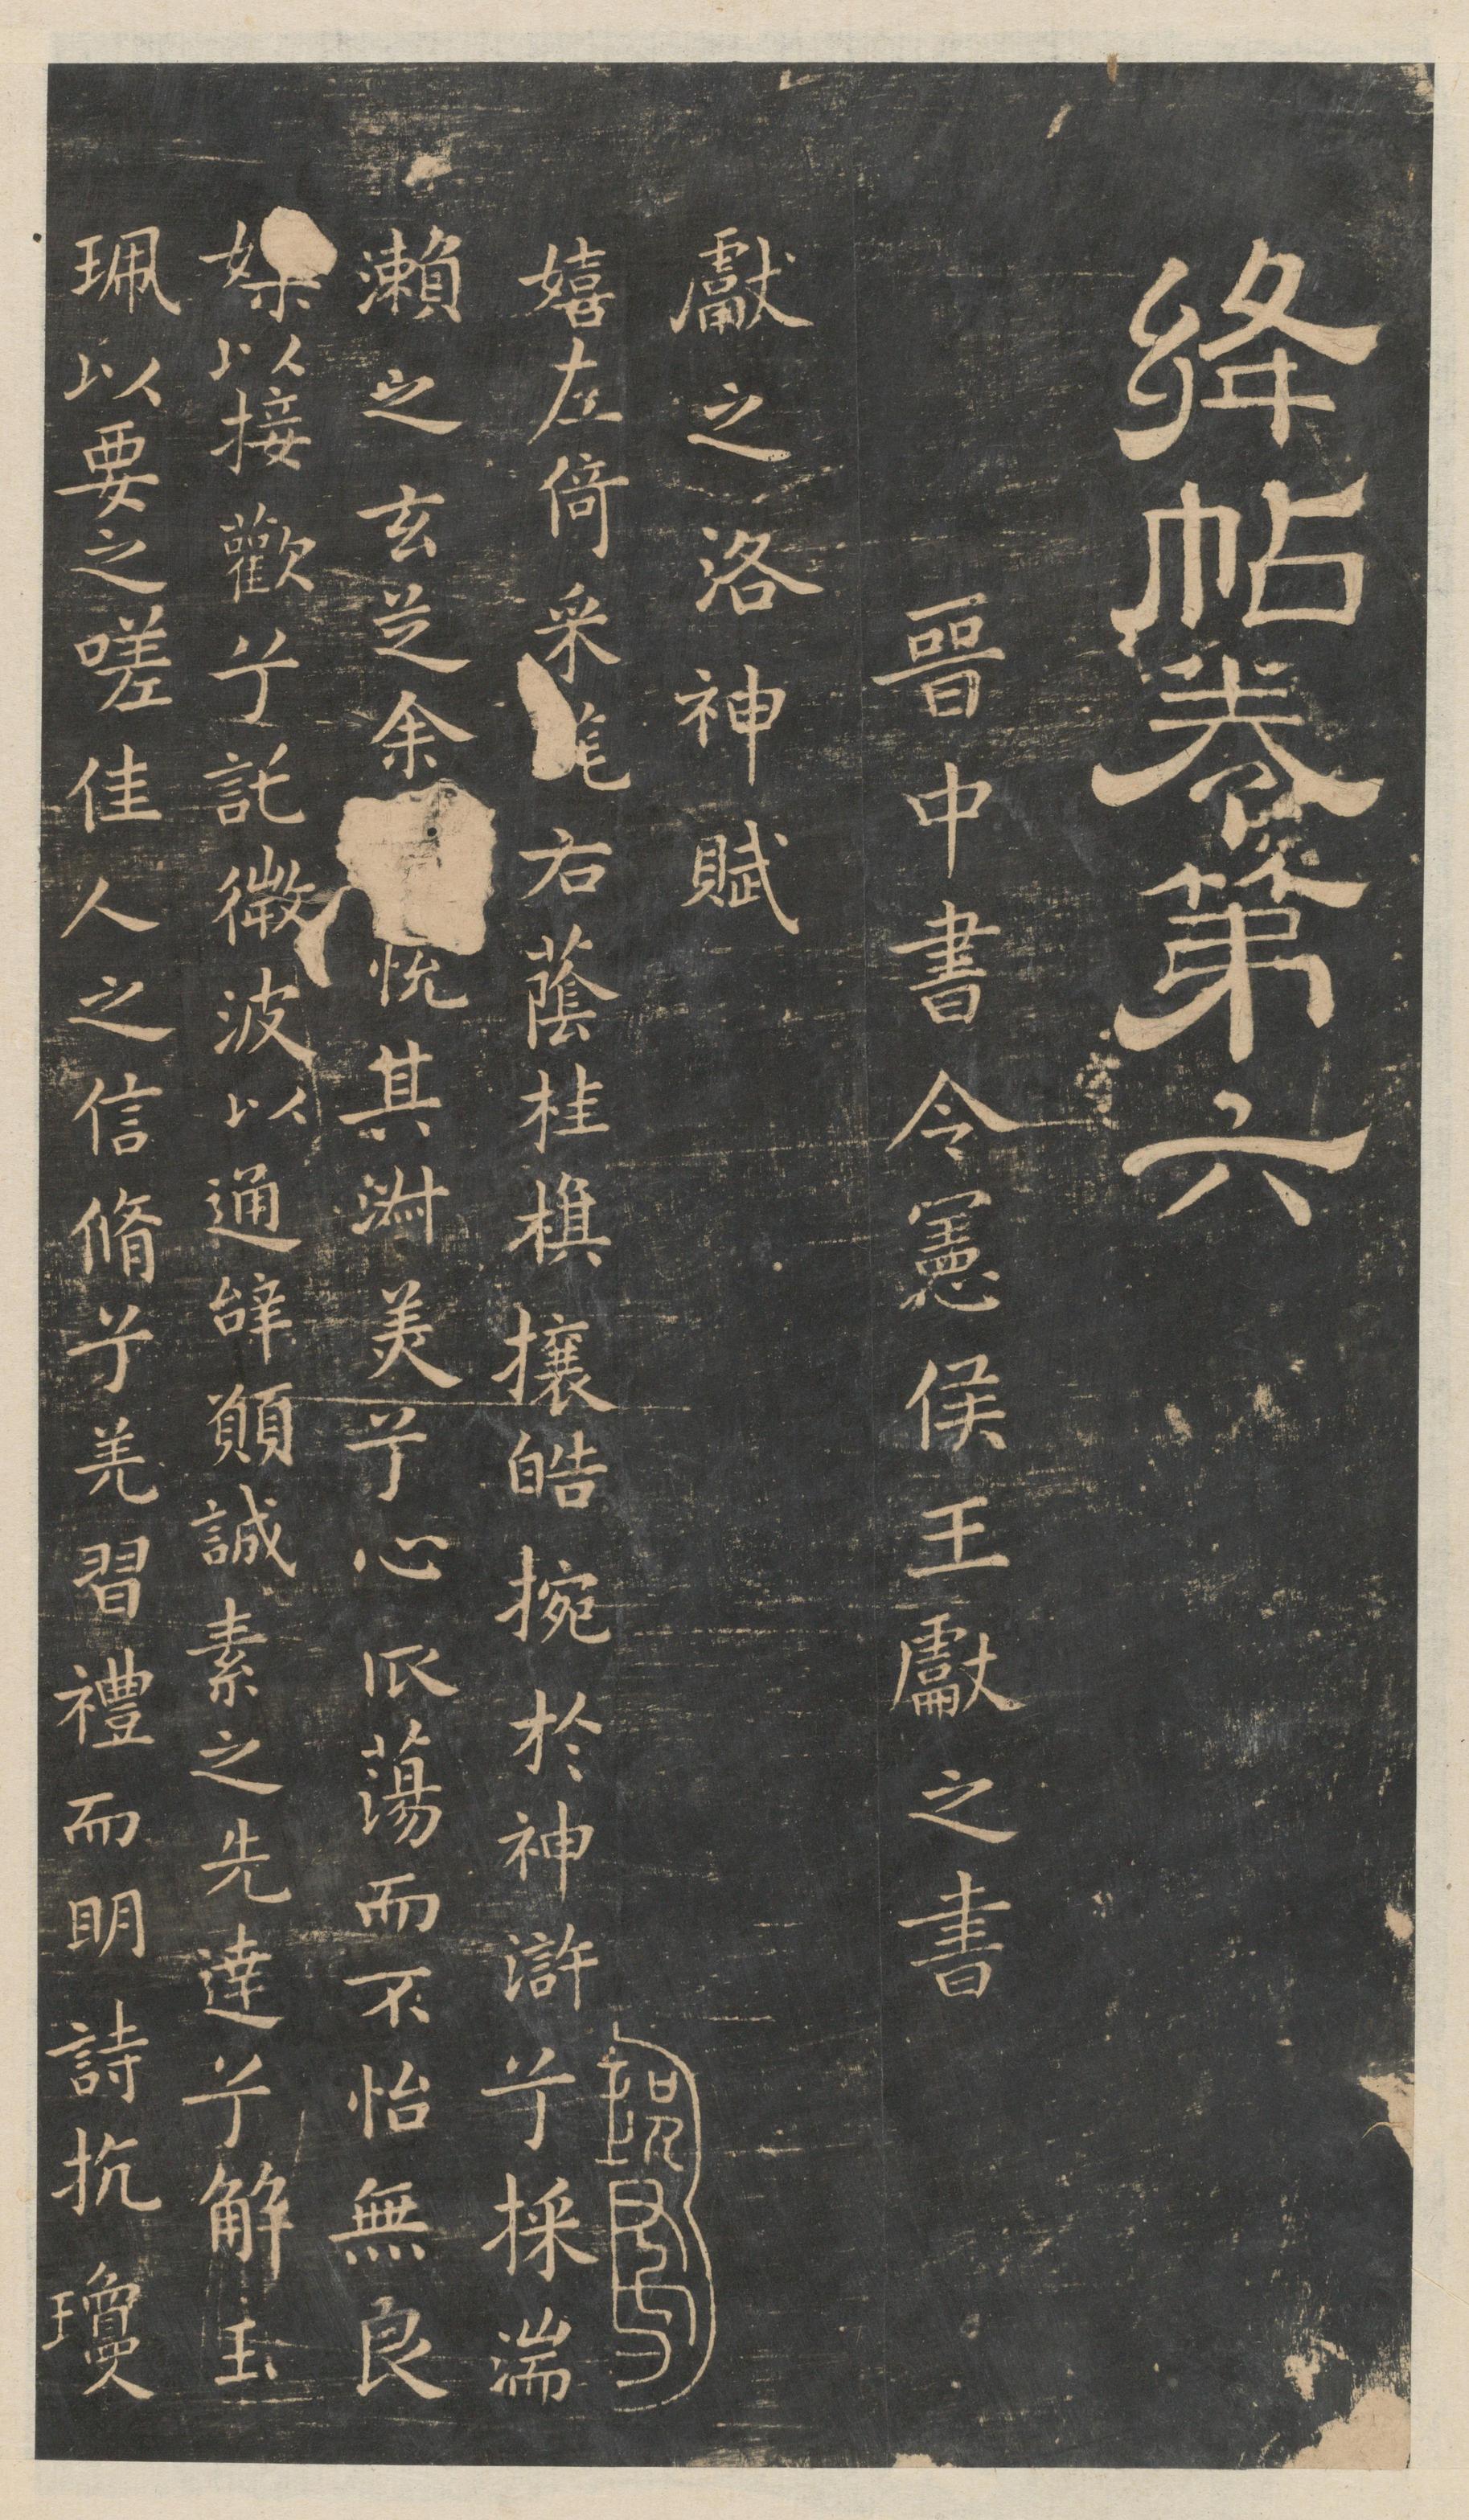 絳帖卷第六
晉中書令憲侯王獻之書
獻之洛神賦
嬉左倚采旄右蔭桂旗攘皓捥於神滸兮採湍
瀨之玄芝余悅其淑美兮心振蕩而不怡無良
媒以接歡兮託微波以通辭願誠素之先達兮解玉
珮以要之嗟佳人之信脩兮羌習禮而明詩抗瓊